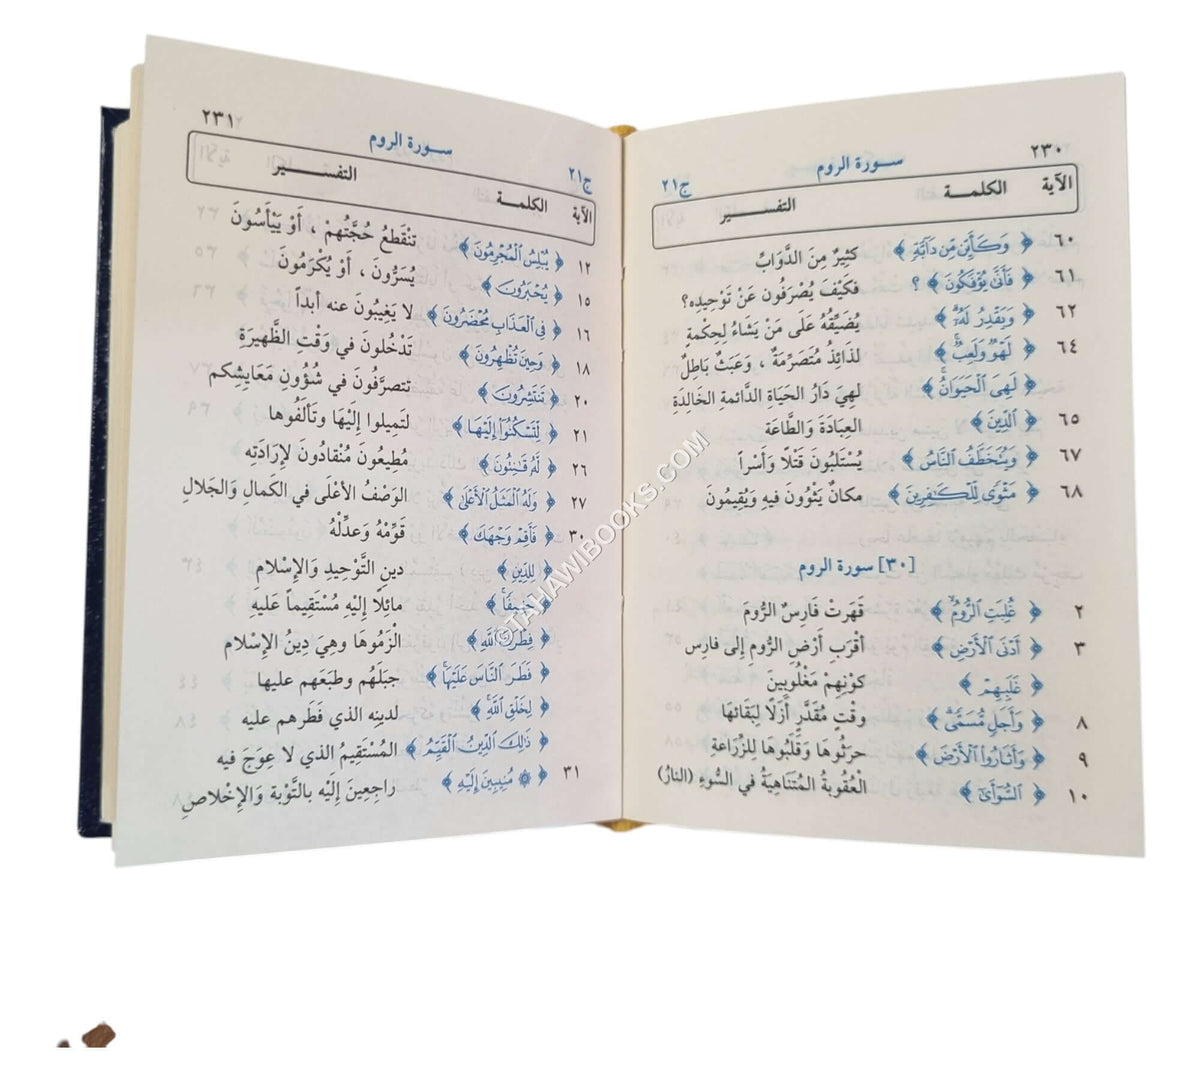 ٢٣٠
سورة الروم
ج٢١
الآية الكلمة التفسير
٦٠ ﴿ وَكَأَيِّن مِّن دَآبَّةٍ ﴾ كَثِيرٌ مِنَ الدَّوَابِّ
٦١ ﴿ فَأَنَّىٰ يُؤْفَكُونَ ﴾ ؟ فكَيْفَ يُصْرَفُون عَنْ تَوْحِيدِه؟
٦٢ ﴿ وَيَقْدِرُ لَهُۥٓ ﴾ يُضَيِّقُهُ عَلَى مَنْ يَشَاءُ لِحِكْمةٍ
٦٤ ﴿ لَهْوٌ وَلَعِبٌ ﴾ لذَائِذُ مُتَصَرِّمَةٌ ، وَعَبَثٌ بَاطِلٌ
﴿ لَهِىَ ٱلْحَيَوَانُ ﴾ لهِيَ دَارُ الحَيَاةِ الدَّائمةِ الخَالِدَةِ
٦٥ ﴿ ٱلدِّينَ ﴾ العِبَادَةَ وَالطَّاعَة
٦٧ ﴿ وَيُتَخَطَّفُ ٱلنَّاسُ ﴾ يُسْتَلَبُونَ قَتْلًا وَأَسْراً
٦٨ ﴿ مَثْوًى لِّلْكَٰفِرِينَ ﴾ مكانٌ يَثْوُونَ فيهِ وَيُقِيمُونَ
[٣٠] سورة الروم
٢ ﴿ غُلِبَتِ ٱلرُّومُ ﴾ قَهَرَتْ فَارِسٌ الرُّومَ
٣ ﴿ أَدْنَى ٱلْأَرْضِ ﴾ أَقْرَبِ أَرْضِ الرُّومِ إلى فارِس
﴿ غَلَبِهِمْ ﴾ كوْنِهِمْ مَغْلُوبِينَ
٨ ﴿ وَأَجَلٍ مُّسَمًّى ﴾ وقْتٍ مُقَدَّرٍ أَزَلًا لِبَقَائهَا
٩ ﴿ وَأَثَارُوا۟ ٱلْأَرْضَ ﴾ حرَثُوهَا وَقَلَبُوهَا لِلزِّرَاعَةِ
١٠ ﴿ ٱلسُّوٓأَىٰٓ ﴾ الْعُقُوبةُ المُتَنَاهِيَةُ في السُّوءِ (النارُ)
٢٣١
سورة الروم
ج٢١
الآية الكلمة التفسير
١٢ ﴿ يُبْلِسُ ٱلْمُجْرِمُونَ ﴾ تنْقَطعُ حُجَّتُهمْ ، أَوْ يَيْأَسُونَ
١٥ ﴿ يُحْبَرُونَ ﴾ يُسَرُّونَ ، أَوْ يُكْرَمُونَ
١٦ ﴿ فِى ٱلْعَذَابِ مُحْضَرُونَ ﴾ لا يَغِيبُونَ عنه أبداً
١٨ ﴿ وَحِينَ تُظْهِرُونَ ﴾ تَدْخُلونَ في وَقْتِ الظَّهِيرَةِ
٢٠ ﴿ تَنتَشِرُونَ ﴾ تتصرَّفُونَ في شُؤُونِ مَعَايِشِكم
٢١ ﴿ لِّتَسْكُنُوٓا۟ إِلَيْهَا ﴾ لتَمِيلوا إِلَيْهَا وتَأْلَفُوها
٢٦ ﴿ لَّهُۥ قَٰنِتُونَ ﴾ مُطِيعُونَ مُنْقادُونَ لإرَادَتِه
٢٧ ﴿ وَلَهُ ٱلْمَثَلُ ٱلْأَعْلَىٰ ﴾ الوَصْفُ الأعْلَى في الكَمالِ وَالجَلالِ
٣٠ ﴿ فَأَقِمْ وَجْهَكَ ﴾ قَوِّمْهُ وَعدِّلْهُ
﴿ لِلدِّينِ ﴾ دينِ التَّوْحِيدِ وَالإِسْلامِ
﴿ حَنِيفًا ﴾ مائِلا إِلَيْهِ مُسْتَقِيماً عَليهِ
﴿ فِطْرَتَ ٱللَّهِ ﴾ الْزَمُوهَا وهِيَ دِينُ الإِسْلام
﴿ فَطَرَ ٱلنَّاسَ عَلَيْهَا ﴾ جبَلَهُم وطبَعَهم عليها
﴿ لِخَلْقِ ٱللَّهِ ﴾ لدينِه الذي فَطَرهم عليه
﴿ ذَٰلِكَ ٱلدِّينُ ٱلْقَيِّمُ ﴾ المُسْتَقِيمُ الذي لا عِوَجَ فيه
٣١ ﴿ ۞ مُنِيبِينَ إِلَيْهِ ﴾ راجِعِينَ إِلَيْه بالتَّوْبة وَالإِخْلاصِ
©TAHAWIBOOKS.COM